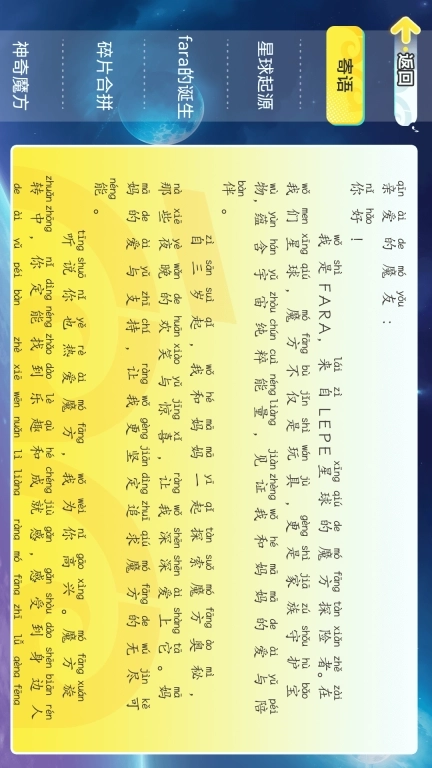 返回
寄语
星球起源
fara的诞生
碎片合拼
神奇魔方
qīn ài de mó yǒu
亲爱的魔友：
nǐ hǎo
你好！
wǒ shì lái zì xīng qiú de mó fāng tàn xiǎn zhě zài
我是FARA，来自LEPE星球的魔方探险者。在
wǒ men xīng qiú mó fāng bù jǐn shì wán jù gèng shì jiā zú shǒu hù bǎo
我们星球，魔方不仅是玩具，更是家族守护宝
wù yùn hán yǔ zhòu chún cuì néng liàng jiàn zhèng wǒ hé mā mā de ài yǔ péi
物，蕴含宇宙纯粹能量，见证我和妈妈的爱与陪
bàn
伴。
zì sān suì qǐ wǒ hé mā mā yì qǐ tàn suǒ mó fāng ào mì
自三岁起，我和妈妈一起探索魔方奥秘，
nà xiē yè wǎn de huān xiào yǔ jīng xǐ ràng wǒ shēn shēn ài shàng tā mā
那些夜晚的欢笑与惊喜，让我深深爱上它。妈
mā de ài yǔ zhī chí ràng wǒ gèng jiān dìng zhuī qiú mó fāng de wú jìn kě
妈的爱与支持，让我更坚定追求魔方的无尽可
néng
能。
tīng shuō nǐ yě rè ài mó fāng wǒ wèi nǐ gāo xìng mó fāng xuán
听说你也热爱魔方，我为你高兴。魔方旋
zhuǎn zhōng nǐ dìng néng zhǎo dào lè qù hé chéng jiù gǎn gǎn shòu dào shēn biān rén
转中，你定能找到乐趣和成就感，感受到身边人
de ài yǔ péi bàn zhè xiē wēn nuǎn lì liàng ràng mó fāng zhī lǚ gèng fēng